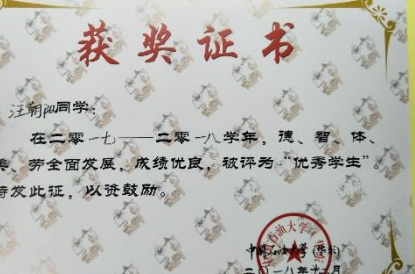 获奖证书
汪朝阳同学:
在二零一七——二零一八学年,德、智、体、
美、劳全面发展,成绩优良,被评为“优秀学生”。
特发此证,以资鼓励。
中国石油大学(华东)
二〇一八年十二月